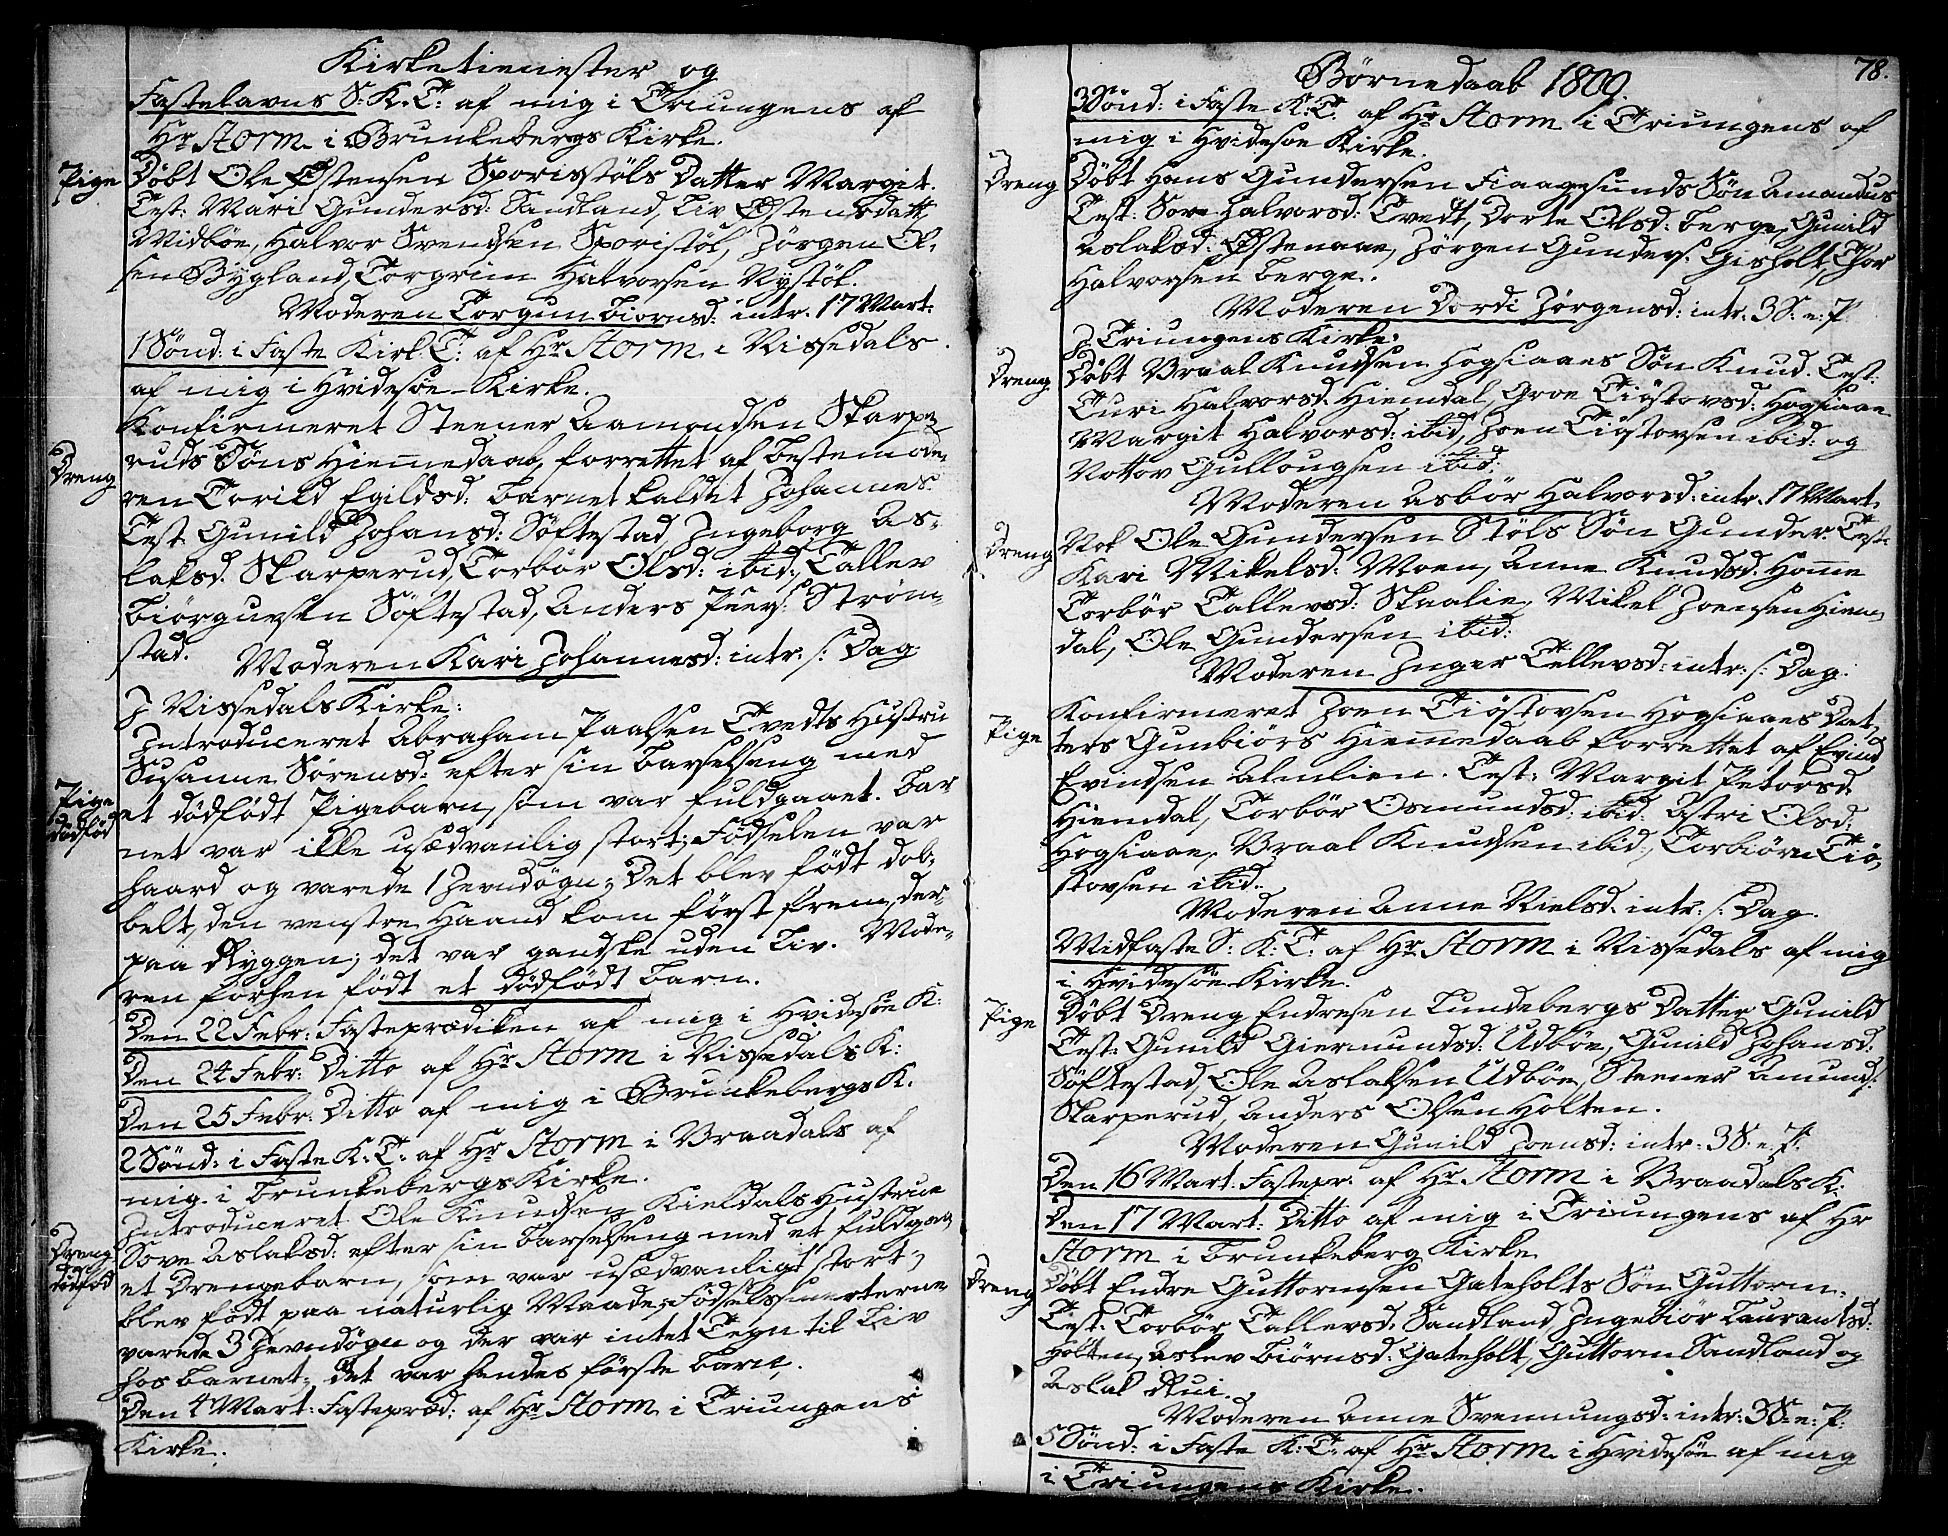 Kirketienester og
Fastelavns S: K: T: af mig i Triungens af
Hr Storm i Brunkebergs Kirke.
Pige
Døbt Ole Østensen Sporisstöls Datter Margit.
Test: Mari Gundersd: Sandland, Liv Østensdatt
Midböe, Halvor Svendsen Sporistöl, Jörgen Ol-
sen Bygland, Torgrim Halvorsen Nystöl.
Moderen Torgun Biornsd: intr. 17 Mart.
1 Sønd: i Faste Kirk. T: af Hr Storm i Nissedals.
af mig i Hvidesøe Kirke.
Dreng
Konfirmeret Steener Aamondsen Skarpe-
ruds Söns Hiemmedaab, forrettet af Bestemode-
ren Torild Egildsd: Barnet kaldet Johannes.
Test. Gunild Johansd: Söftestad, Ingeborg As-
laksd. Skarperud, Torbör Olsd: ibid:, Tallev
Biörgusen Söftestad, Anders Peers: Ström-
stad.
Moderen Kari Johannesd: intr. s: Dag.
J Nissedals Kirke:
Introduceret Abraham Paalsen Tvedts Hustru
Susanne Sörensd: efter sin Barselseng med
Pige
dödfød
et dödfödt Pigebarn, som var fuldgaaet. Bar
net var ikke usædvanlig stort; Födselen var
haard og varede 1 Jevndögn; Det blev födt dob-
belt, den venstre Haand kom först frem, der-
paa Ryggen; det var gandske uden Liv. Mode-
ren forhen födt et dödfödt Barn.
Den 22 Febr: Fasteprædiken af mig i Hvidesøe K:
Den 24 Febr: Ditto af Hr Storm i Nissedals K:
Den 25 Febr: Ditto af mig i Brunkebergs K.
2 Sønd: i Faste K: T: af Hr Storm i Vraadals af
mig i Brunkebergs Kirke.
Introduceret Ole Knudsen Kieldals Hustrue
Dreng
dödfød
Sove Aslaksd: efter sin Barselseng med et fuldgaa-
et Drengebarn, som var usædvanligt stort;
blev födt paa naturlig Maade; Födselssmerterne
varede 3 Jevndögn og der var intet Tegn til Liv
hos Barnet; det var hendes förste Barn.
Den 4 Mart: Fastepræd: af Hr Storm i Triungens
Kirke.
78.
Børnedaab 1809.
3 Sönd: i Faste K: T. af Hr Storm i Triungens af
mig i Hvidesøe Kirke.
Dreng
Döbt Hans Gundersen Fiaagesunds Sön Amandus
Test: Sove Halvorsd: Tvedt, Dorte Olsd: Berge, Gunild
Aslaksd: Østenaae, Jörgen Gunders: Gisholt, Thor
Halvorsen Berge.
Moderen Dordi Jörgensd: intr: 3 S. e: P.
J Triungens Kirke:
Dreng
Döbt Vraal Knudsen Hogsiaaes Sön Knud. Test.
Turi Halvorsd. Hiemdal, Groe Tiöstovsd: Hogsiaae
Margit Halvorsd: ibid, Joen Tiöstovsen ibid: og
Nottov Gullougsen ibid:
Moderen Asbör Halvorsd: intr. 17 Mart.
Dreng
Nok Ole Gundersen Stöls Sön Gunder. Test:
Kari Mikelsd: Moen, Anne Knudsd. Homme
Torbör Tallevsd: Skaalie, Mikel Joensen Hiem-
dal, Ole Gundersen ibid:
Moderen Inger Tellevsd: intr: s: Dag.
Pige
Konfirmeret Joen Tiöstovsen Hogsiaaes Dat-
ters Gunbiörs Hiemmedaab forrettet af Evind
Evindsen Almlien. Test: Margit Petorsd
Hiemdal, Torbör Osmundsd: ibid: Astri Olsd:
Hogsiaae, Vraal Knudsen ibid:, Torbiörn Tiö-
stovsen ibid.
Moderen Anne Nielsd. intr: s: Dag.
Midfaste S: K: T: af Hr Storm i Nissedals af mig
i Hvidesöe Kirke.
Pige
Döbt Dreng Endresen Lundebergs Datter Gunild
Test: Gunild Giermundsd: Udböe, Gunild Johansd:
Söftestad, Ole Aslaksen Udböe, Steener Amunds:
Skarperud, Anders Olsen Holten.
Moderen Gunild Joensd: intr: 3 S. e. P.
Den 16 Mart. Fastepr: af Hr Storm i Vraadals K:
Den 17 Mart: Ditto af mig i Triungens af Hr
Storm i Brunkeberg Kirke
Dreng
Döbt Endre Guttormsen Gateholts Sön Guttorm.
Test. Torbör Tallevsd: Sandland Ingebiör Laurantsd:
Holten, Aslev Biörnsd: Gateholt, Guttorm Sandland og
Aslak Rui.
Moderen Anne Svennungsd: intr: 3 S: e: P:
5 Sönd: i Faste K: T: af Hr Storm i Hvidesøe af mig
i Triungens Kirke.